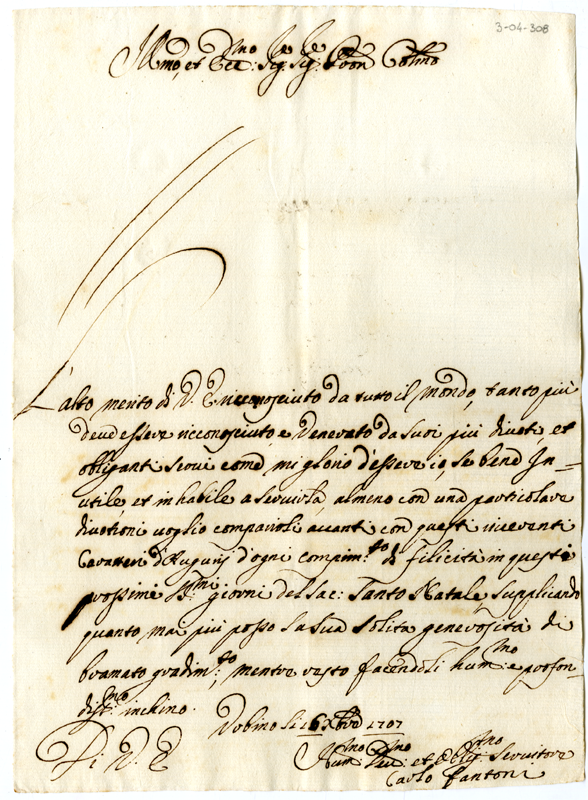 3-04-308
Ill.mo, et Ecc.mo Sig.re Sig.re Pron Col.mo
L'alto merito di V. E. riconosciuto da tutto il mondo, tanto più
deve essere riconosciuto e venerato da suoi più divoti, et
obliganti servi come mi glorio d'essere io, se bene In=
utile et inhabile a servirla, almeno con una particolare
divotioni voglio comparirli avanti con questi riverenti
Caratteri d'Augurij d'ogni compim.to di felicità in questi
prossimi S.mi giorni del sac: Santo Natale, supplicando
quanto mai più posso la sua solita generosità di
bramato gradim.to, mentre resto facendoli hum.mo e profon=
diss.mo inchino.
Dubino li 16 Xbre 1707
Di V. E.
Hum.mo Dev.mo et Oblig.mo Servitore
Carlo Fantoni